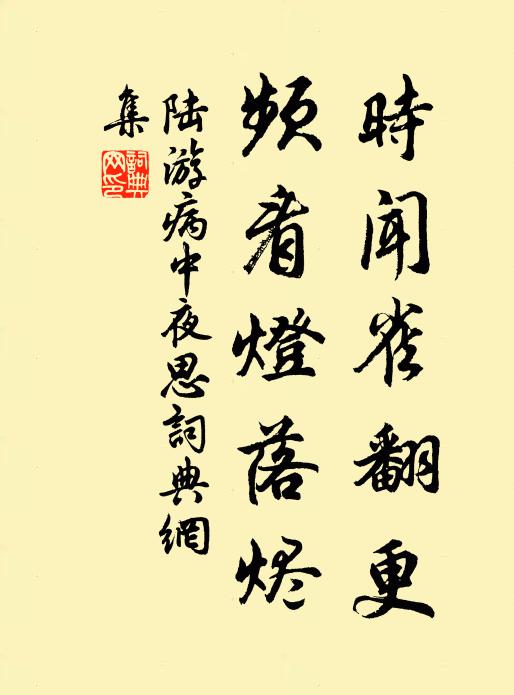 時聞雀翻更
頻看燈落烬
陸游病中夜思詞典網
集
詞典
网印